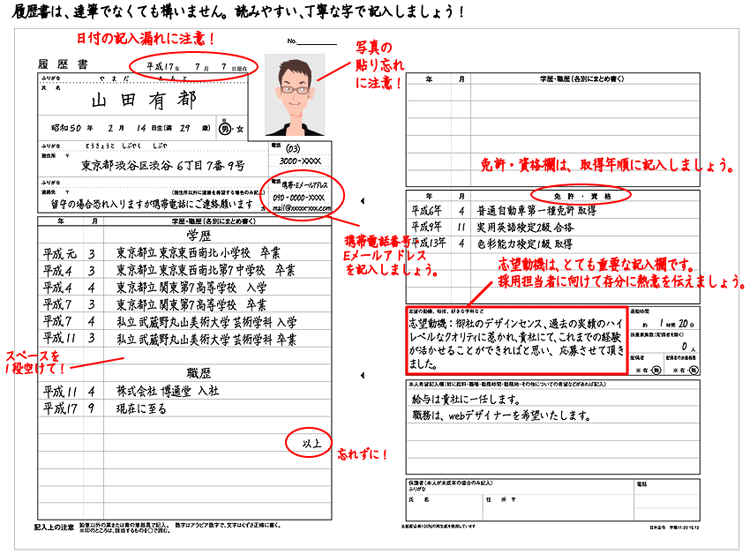 履歴書は、達筆でなくても構いません。読みやすい、丁寧な字で記入しましょう！
日付の記入漏れに注意！
No.
履歴書
平成17年 7月 7日現在
写真の
貼り忘れ
に注意！
ふりがな やまだ
氏名
山田有都
昭和50年 2月 14日生(満 29 歳)
男・女
ふりがな とうきょうと しぶやく しぶや
現住所 〒
東京都渋谷区渋谷 6丁目7番9号
電話 (03)
3000-XXXX
ふりがな
連絡先 〒 (現住所以外に連絡を希望する場合のみ記入)
留守の場合恐れ入りますが携帯電話にご連絡願います 方
電話 携帯・Eメールアドレス
090-0000-XXXX
mail@xxxxxxxx.com
携帯電話番号
Eメールアドレス
を記入しましょう。
年 月 学歴・職歴(各別にまとめ書く)
学歴
平成元 3 東京都立東京東西南北小学校 卒業
平成4 3 東京都立東京東西南北第7中学校 卒業
平成4 4 東京都立関東第7高等学校 入学
平成7 3 東京都立関東第7高等学校 卒業
平成7 4 私立武蔵野丸山美術大学芸術学科 入学
平成11 3 私立武蔵野丸山美術大学芸術学科 卒業
スペースを
1段空けて！
職歴
平成11 4 株式会社 博通堂 入社
平成17 9 現在に至る
以上
忘れずに！
記入上の注意 鉛筆以外の黒または青の筆記具で記入。 数字はアラビア数字で、文字はくずさず正確に書く。
※印のところは、該当するものを○で囲む。
年 月 学歴・職歴(各別にまとめ書く)
免許・資格欄は、取得年順に記入しましょう。
年 月 免許・資格
平成6年 4 普通自動車第一種免許 取得
平成9年 11 実用英語検定2級 合格
平成13年 4 色彩能力検定1級 取得
志望動機は、とても重要な記入欄です。
採用担当者に向けて存分に熱意を伝えましょう。
志望の動機、特技、好きな学科など
志望動機：御社のデザインセンス、過去の実績のハイ
レベルなクオリティに惹かれ、貴社にて、これまでの経験
が活かせることができればと思い、応募させて頂き
ました。
通勤時間
約 1 時間 20分
扶養家族数(配偶者を除く)
0 人
配偶者
※有・無
配偶者の扶養義務
※有・無
本人希望記入欄(特に給料・職種・勤務時間・勤務地・その他についての希望などがあれば記入)
給与は貴社に一任します。
職務は、webデザイナーを希望いたします。
保護者(本人が未成年の場合のみ記入)
ふりがな
氏名 住所 〒
電話